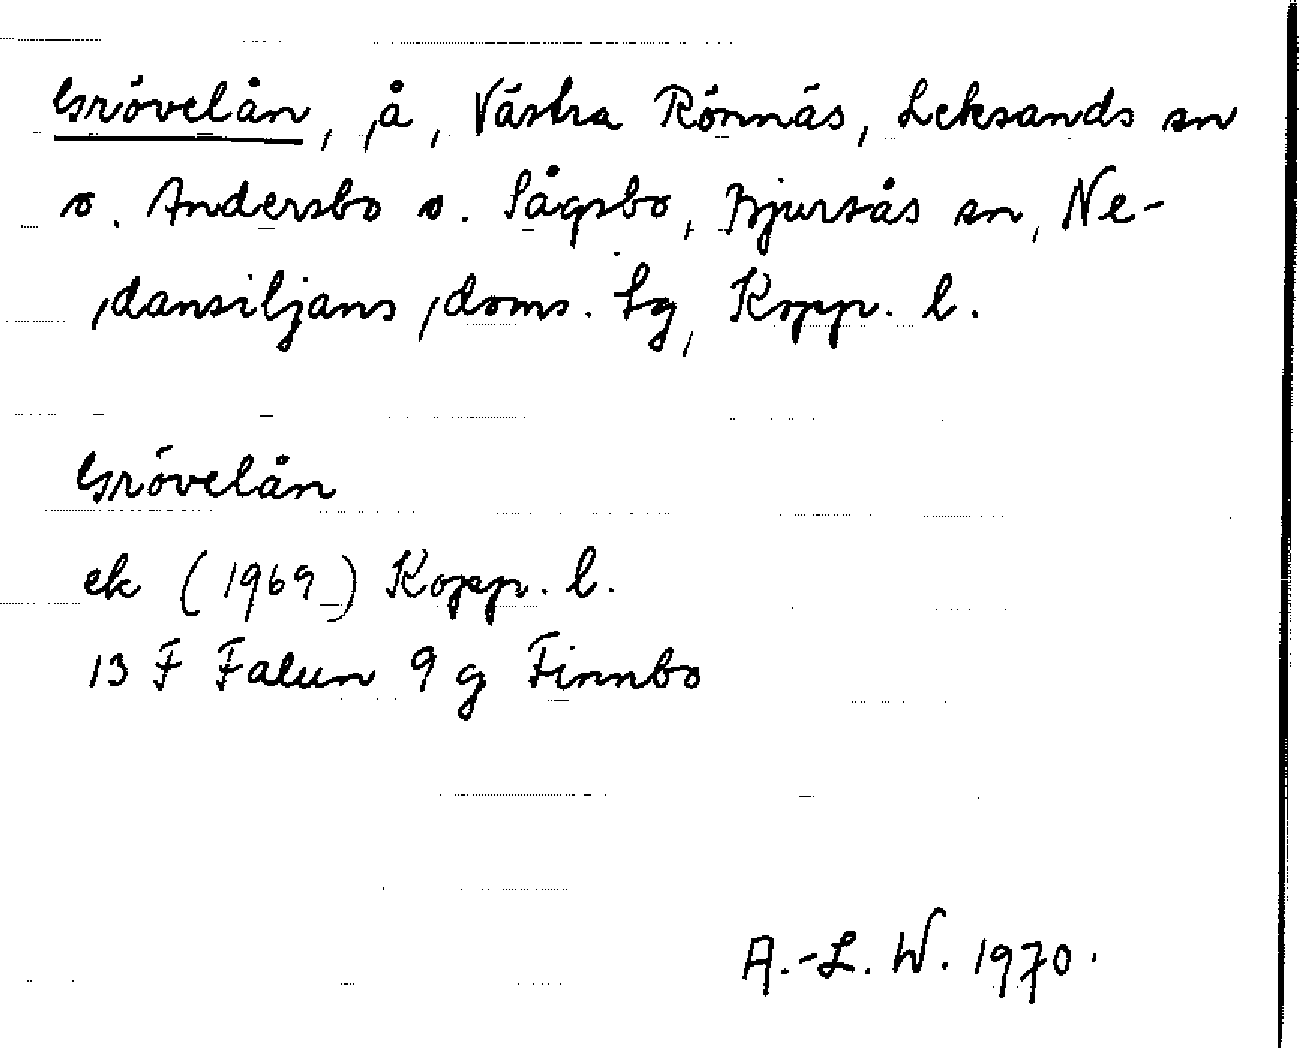 Grövelån, å, Västra Rönnäs, Leksands sn
o. Andersbo o. Sågsbo, Bjursås sn, Ne-
dansiljans doms. tg, Kopp. l.
Grövelån
ek (1969) Kopp. l.
13 F Falun 9 g Finnbo
A.-L. W. 1970.